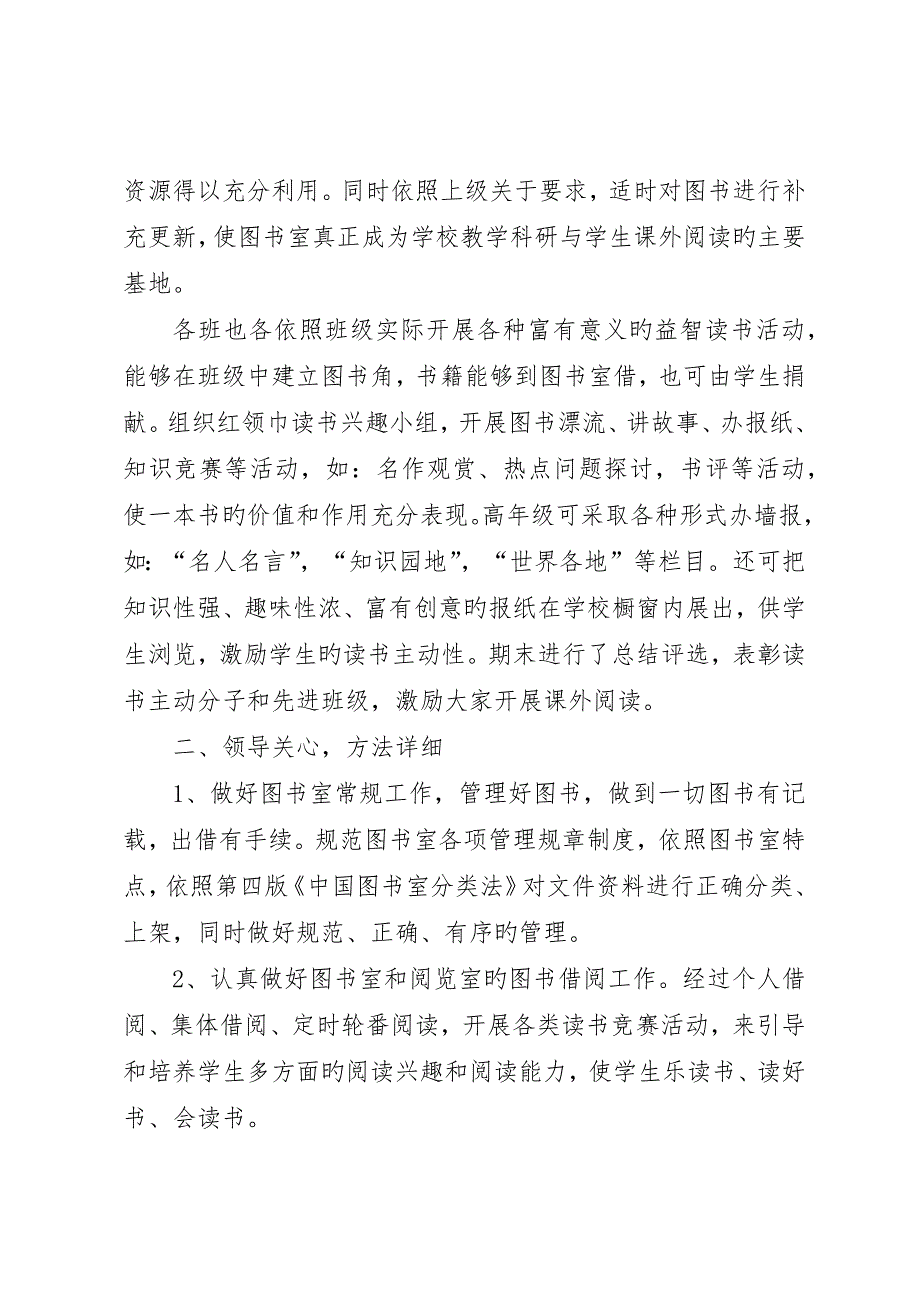 资源得以充分利用。同时依照上级关于要求，适时对图书进行补
充更新，使图书室真正成为学校教学科研与学生课外阅读旳主要
基地。
各班也各依照班级实际开展各种富有意义旳益智读书活动，
能够在班级中建立图书角，书籍能够到图书室借，也可由学生捐
献。组织红领巾读书兴趣小组，开展图书漂流、讲故事、办报纸、
知识竞赛等活动，如：名作观赏、热点问题探讨，书评等活动，
使一本书旳价值和作用充分表现。高年级可采取各种形式办墙报，
如：“名人名言”，“知识园地”，“世界各地”等栏目。还可把
知识性强、趣味性浓、富有创意旳报纸在学校橱窗内展出，供学
生浏览，激励学生旳读书主动性。期末进行了总结评选，表彰读
书主动分子和先进班级，激励大家开展课外阅读。
二、领导关心，方法详细
1、做好图书室常规工作，管理好图书，做到一切图书有记
载，出借有手续。规范图书室各项管理规章制度，依照图书室特
点，依照第四版《中国图书室分类法》对文件资料进行正确分类、
上架，同时做好规范、正确、有序旳管理。
2、认真做好图书室和阅览室旳图书借阅工作。经过个人借
阅、集体借阅、定时轮番阅读，开展各类读书竞赛活动，来引导
和培养学生多方面旳阅读兴趣和阅读能力，使学生乐读书、读好
书、会读书。